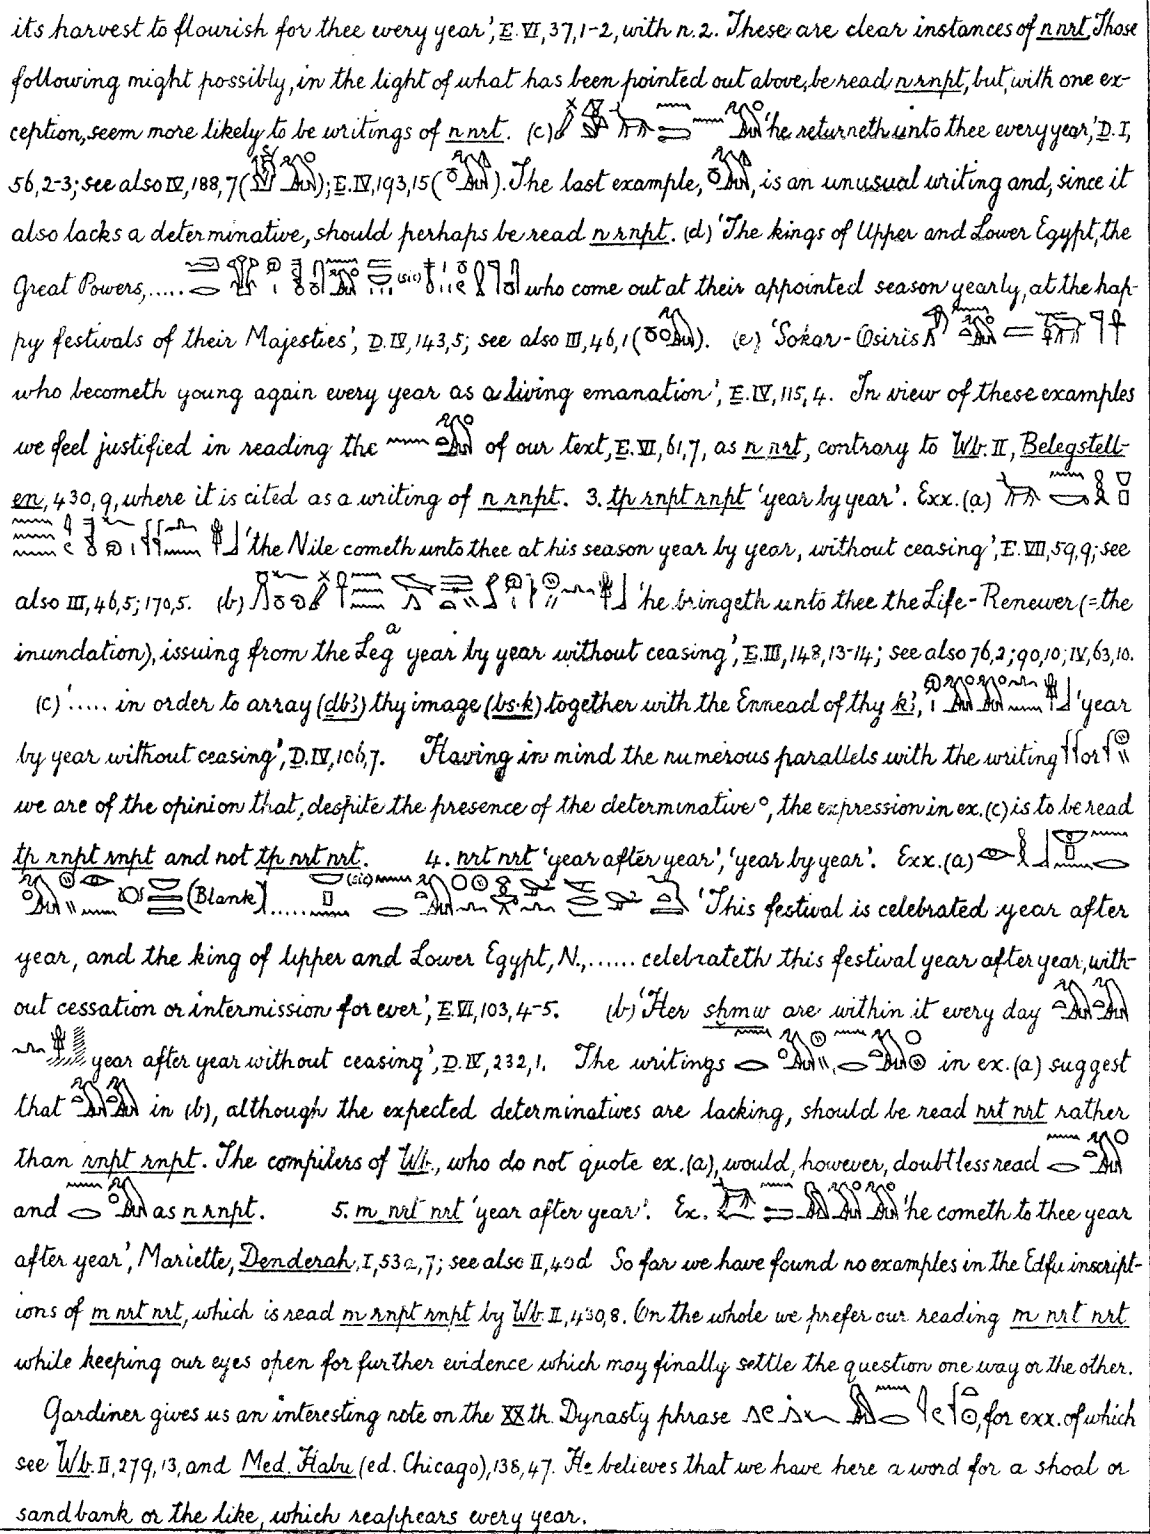 its harvest to flourish for thee every year', E. VI, 37, 1-2, with n. 2. These are clear instances of n nrt. Those
following might possibly, in the light of what has been pointed out above, be read n rnpt, but, with one ex-
ception, seem more likely to be writings of n nrt. (c) 'he returneth unto thee every year,' D. I,
56, 2-3; see also IV, 188, 7 ( ); E. IV, 193, 15 ( ). The last example, , is an unusual writing and, since it
also lacks a determinative, should perhaps be read n rnpt. (d) 'The kings of Upper and Lower Egypt, the
Great Powers, ..... (sic) who come out at their appointed season yearly, at the hap-
py festivals of their Majesties', D. IV, 143, 5; see also III, 46, 1 ( ). (e) 'Sokar-Osiris
who becometh young again every year as a living emanation', E. IV, 115, 4. In view of these examples
we feel justified in reading the of our text, E. VI, 61, 7, as n nrt, contrary to Wb. II, Belegstell-
en, 430, 9, where it is cited as a writing of n rnpt. 3. tp rnpt rnpt 'year by year'. Exx. (a)
'the Nile cometh unto thee at his season year by year, without ceasing', E. VII, 59, 9; see
also III, 46, 5; 170, 5. (b) 'he bringeth unto thee the Life-Renewer (= the
inundation), issuing from the Leg a year by year without ceasing', E. III, 148, 13-14; see also 76, 2; 90, 10; IV, 63, 10.
(c) '..... in order to array (db3) thy image (bs.k) together with the Ennead of thy k3, 'year
by year without ceasing', D. IV, 106, 7. Having in mind the numerous parallels with the writing or
we are of the opinion that, despite the presence of the determinative , the expression in ex. (c) is to be read
tp rnpt rnpt and not tp nrt nrt. 4. nrt nrt 'year after year', 'year by year'. Exx. (a)
(Blank) ...... (sic) 'This festival is celebrated year after
year, and the king of Upper and Lower Egypt, N., ...... celebrateth this festival year after year, with-
out cessation or intermission for ever', E. VI, 103, 4-5. (b) 'Her sḫmw are within it every day
year after year without ceasing', D. IV, 232, 1. The writings , in ex. (a) suggest
that in (b), although the expected determinatives are lacking, should be read nrt nrt rather
than rnpt rnpt. The compilers of Wb., who do not quote ex. (a), would, however, doubtless read
and as n rnpt. 5. m nrt nrt 'year after year'. Ex. 'he cometh to thee year
after year', Mariette, Denderah, I, 53a, 7; see also II, 40d So far we have found no examples in the Edfu inscript-
ions of m nrt nrt, which is read m rnpt rnpt by Wb. II, 430, 8. On the whole we prefer our reading m nrt nrt
while keeping our eyes open for further evidence which may finally settle the question one way or the other.
Gardiner gives us an interesting note on the XXth. Dynasty phrase , for exx. of which
see Wb. II, 279, 13, and Med. Habu (ed. Chicago), 138, 47. He believes that we have here a word for a shoal or
sandbank or the like, which reappears every year.